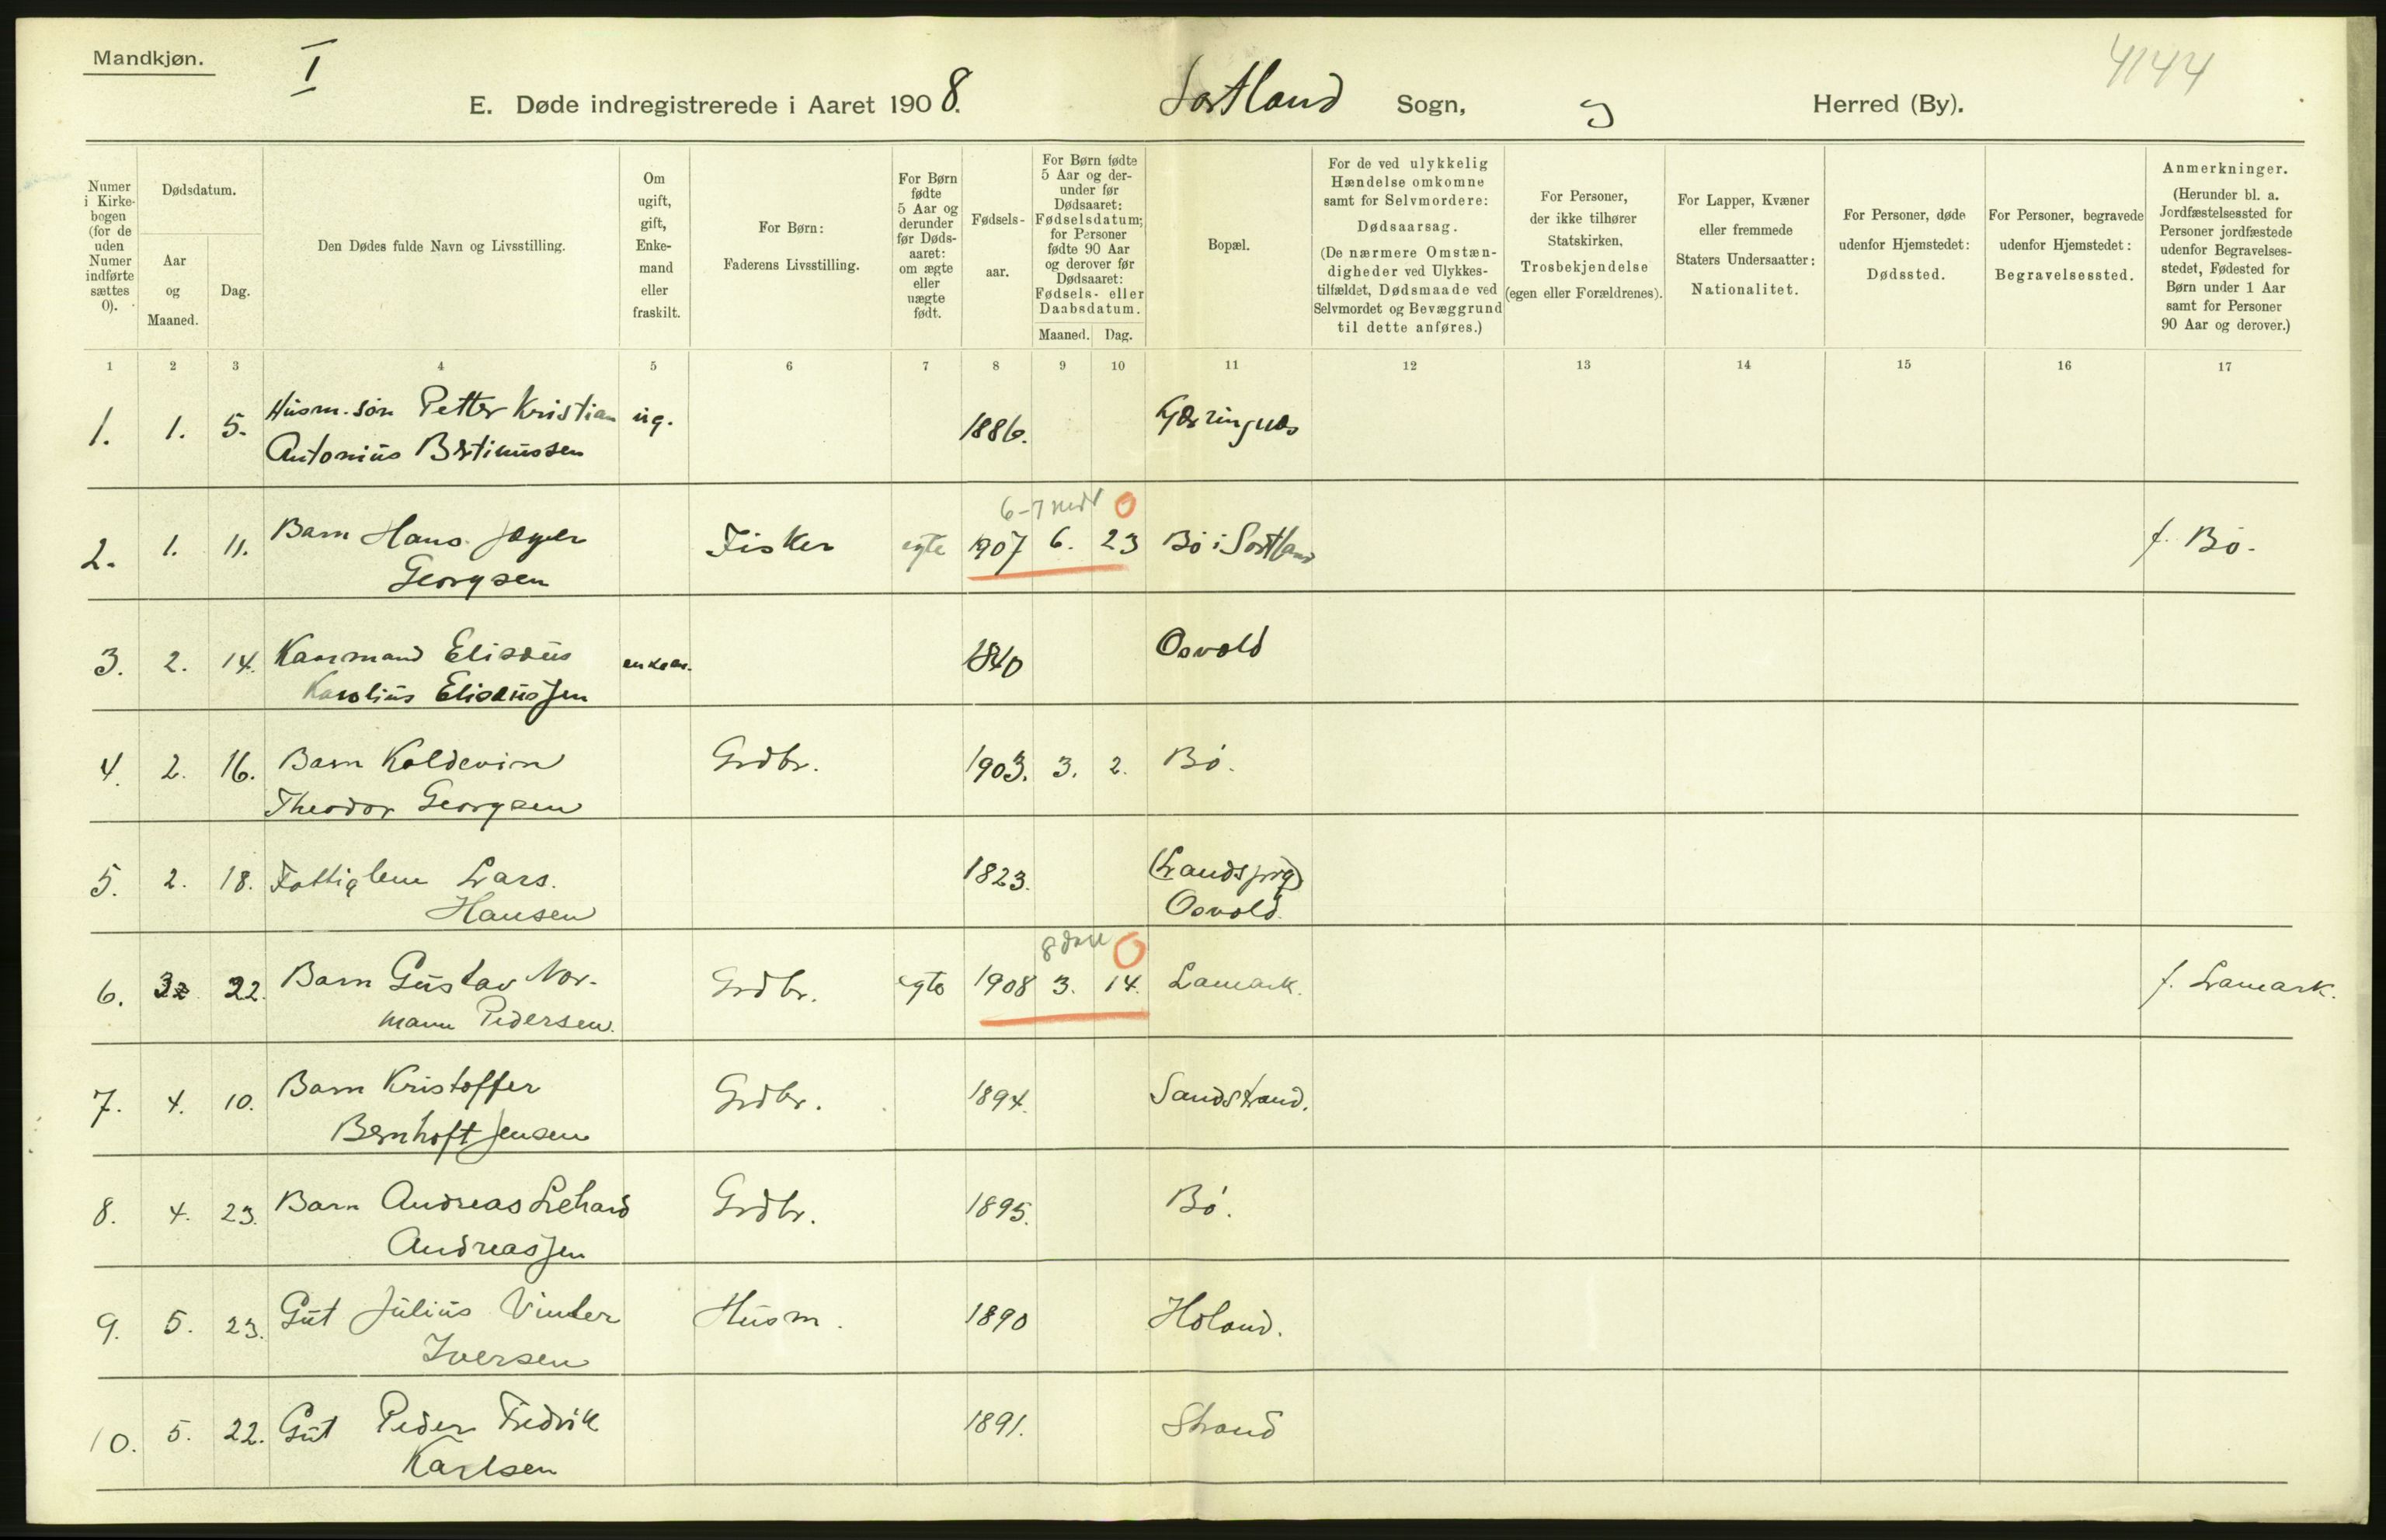 Mandkjøn.
I
4144
E. Døde indregistrerede i Aaret 1908. Sortland Sogn, Herred (By).
Numer i Kirkebogen (for de uden Numer indførte sættes 0).
Dødsdatum.
Aar og Maaned.
Dag.
Den Dødes fulde Navn og Livsstilling.
Om ugift, gift, Enkemand eller fraskilt.
For Børn: Faderens Livsstilling.
For Børn fødte 5 Aar og derunder før Dødsaaret: om ægte eller uægte født.
Fødselsaar.
For Børn fødte 5 Aar og derunder før Dødsaaret: Fødselsdatum; for Personer fødte 90 Aar og derover før Dødsaaret: Fødsels- eller Daabsdatum.
Maaned. Dag.
Bopæl.
For de ved ulykkelig Hændelse omkomne samt for Selvmordere: Dødsaarsag. (De nærmere Omstændigheder ved Ulykkestilfældet, Dødsmaade ved Selvmordet og Bevæggrund til dette anføres.)
For Personer, der ikke tilhører Statskirken, Trosbekjendelse (egen eller Forældrenes).
For Lapper, Kvæner eller fremmede Staters Undersaatter: Nationalitet.
For Personer, døde udenfor Hjemstedet: Dødssted.
For Personer, begravede udenfor Hjemstedet: Begravelsessted.
Anmerkninger. (Herunder bl. a. Jordfæstelsessted for Personer jordfæstede udenfor Begravelsesstedet, Fødested for Børn under 1 Aar samt for Personer 90 Aar og derover.)
1 2 3 4 5 6 7 8 9 10 11 12 13 14 15 16 17
1. 1. 5. Husm. søn Petter Kristian ug. 1886. Gjæringnes
Antonius Bertinussen
6-7 mdr 0
2. 1. 11. Barn Hans Jæger Fisker egte 1907 6. 23 Bø i Sortland f. Bø.
Georgsen
3. 2. 14. Kaarmand Elisæus enkem. 1840 Osvold
Karolius Elisæussen
4. 2. 16. Barn Koldevin Grdbr. 1903. 3. 2. Bø.
Theodor Georgsen
5. 2. 18. Fattiglem Lars 1823. (Landsjorg)
Hansen Osvold.
8 dage 0
6. 3 22. Barn Gustav Nor- Grdbr. egte 1908 3. 14. Lamark. f. Lamark.
mann Pedersen.
7. 4. 10. Barn Kristoffer Grdbr. 1894. Sandstrand.
Bernhoft Jensen
8. 4. 23. Barn Andreas Lehard Grdbr. 1895. Bø.
Andreassen
9. 5. 23. Gut Julius Vinter Husm. 1890 Holand.
Iversen
10. 5. 22. Gut Peder Fredrik 1891. Strand
Karlsen